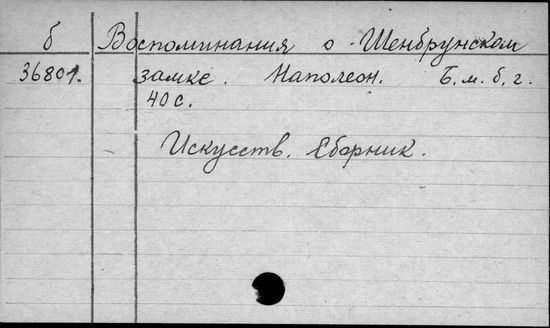 б Воспоминания о Шенбрунском
36801. замке. Наполеон. Б.м.б.г.
40 с.
Искусств. Сборник.